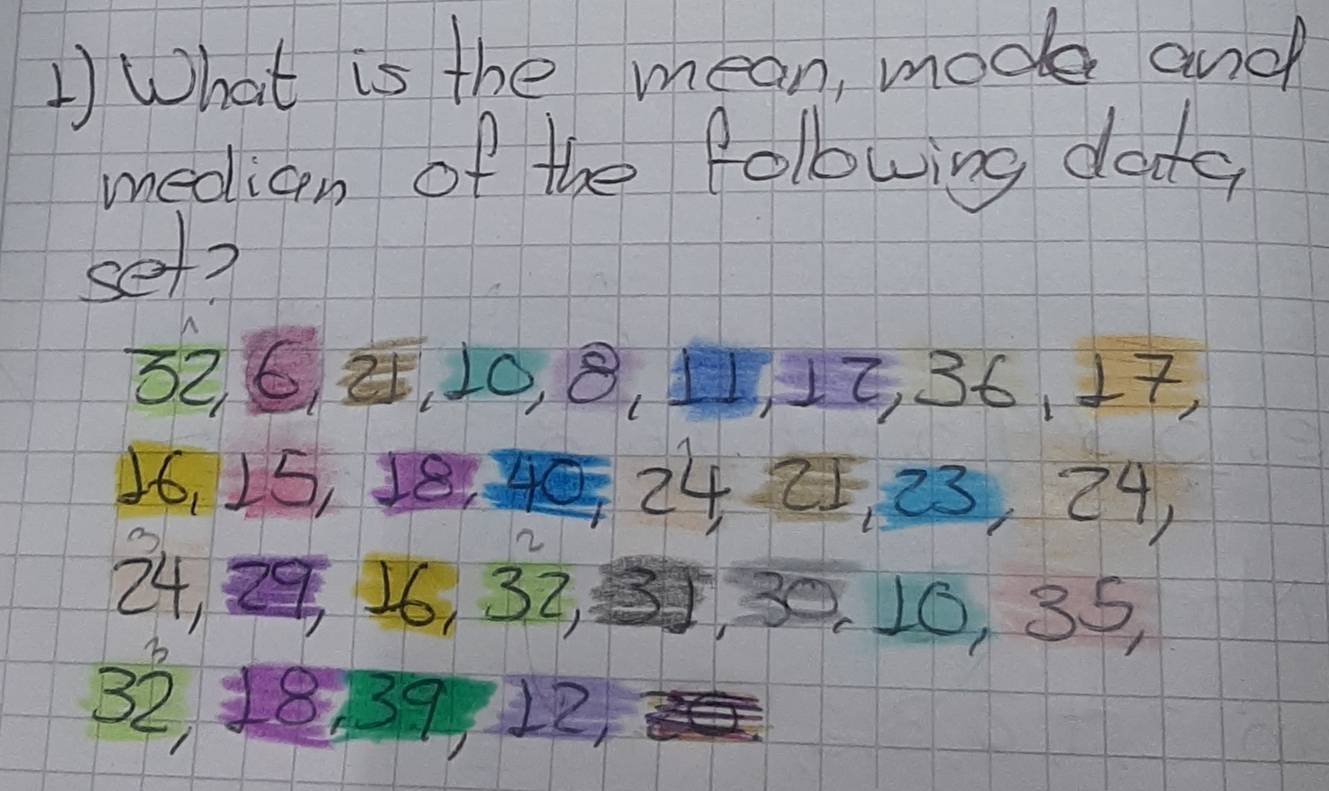 1) What is the mean, mode and
median of the following data
set?
1
32, 6, 21, 10, 8, 11, 12, 36, 17,
1
16, 15, 18, 40, 24, 21, 23, 24,
3 2
24, 29, 16, 32, 31, 30, 10, 35,
3
32, 18, 39, 12, 20